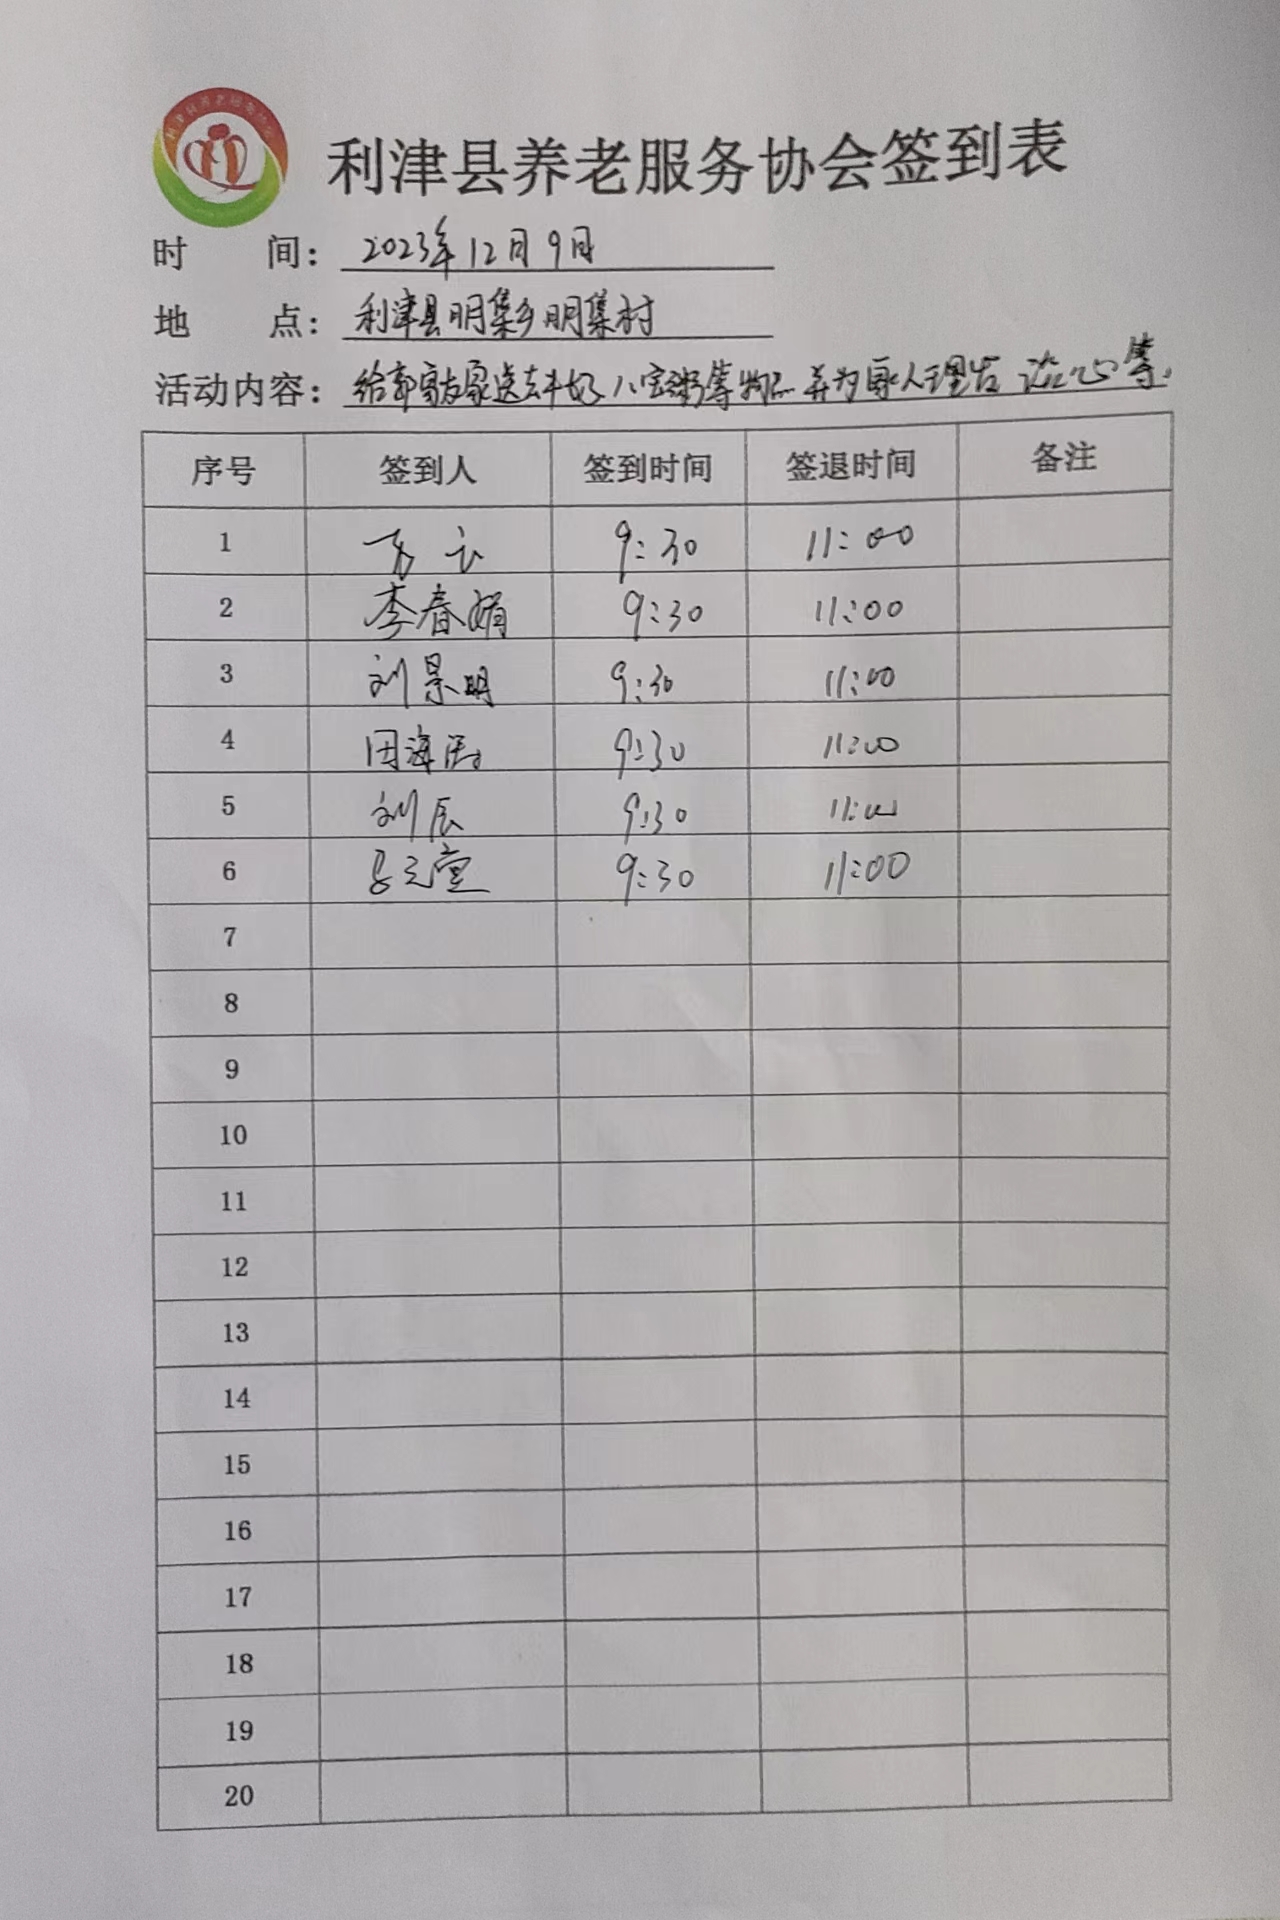 利津县养老服务协会
利津县养老服务协会签到表
时 间： 2023年12月9日
地 点： 利津县明集乡明集村
活动内容： 给郭家友家送去牛奶八宝粥等物品并为家人理发 谈心等.
序号 签到人 签到时间 签退时间 备注
1 9:30 11:00
2 李春娟 9:30 11:00
3 刘景明 9:30 11:00
4 田海 9:30 11:00
5 刘辰 9:30 11:00
6 9:30 11:00
7
8
9
10
11
12
13
14
15
16
17
18
19
20